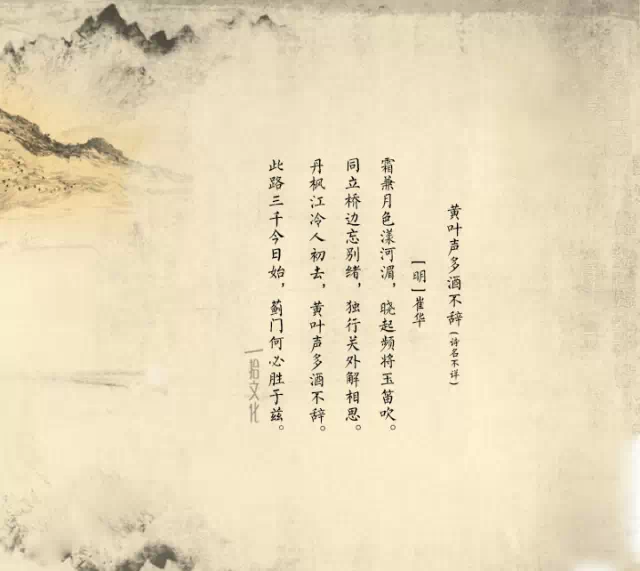 黄叶声多酒不辞(诗名不详)
[明]崔华
霜兼月色漾河湄，晓起频将玉笛吹。
同立桥边忘别绪，独行关外解相思。
丹枫江冷人初去，黄叶声多酒不辞。
此路三千今日始，蓟门何必胜于兹。
拾文化